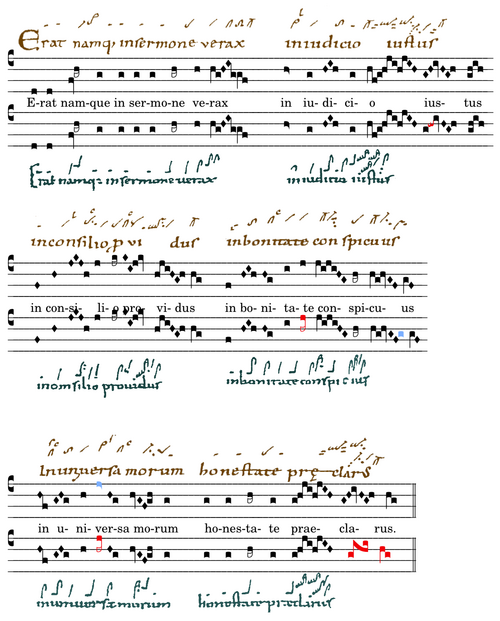 Erat namq; insermone verax iniudicio iustus
E-rat nam-que in ser-mo-ne ve-rax in iu-di-ci-o ius-tus
Erat namq; insermone uerax iniudicio iustus
inconsilio p vi dus inbonitate conspicuus
in con-si-li-o pro-vi-dus in bo-ni-ta-te con-spi-cu-us
inconsilio prouidus inbonitate conspicuus
Inuniuersa morum honestate pre clarus
in u-ni-ver-sa mo-rum ho-nes-ta-te prae-cla-rus.
inuniuersa morum honestate preclarus